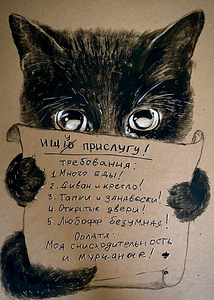 ИЩУ ПРИСЛУГУ!
Требования:
1. Много еды!
2. Диван и кресло!
3. Тапки и занавески!
4. Открытые двери!
5. Любофф безумная!
Оплата:
Моя снисходительность
и мурчание!